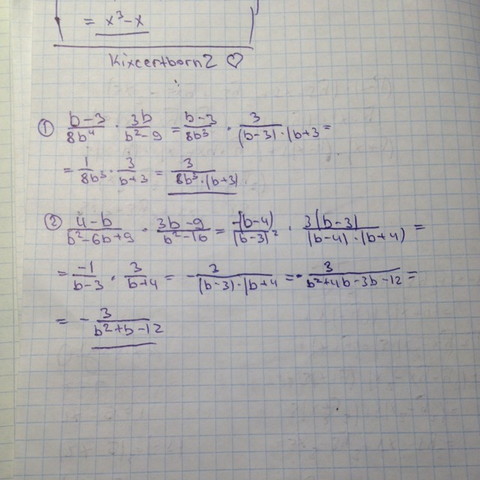 = x³-x
Kixcertborn2 ♡
① (b-3)/(8b⁴) · (3b)/(b²-9) = (b-3)/(8b³) · 3/((b-3)·(b+3 =
= 1/(8b³) · 3/(b+3) = 3/(8b³·(b+3)
② (4-b)/(b²-6b+9) · (3b-9)/(b²-16) = (-(b-4))/((b-3)²) · (3(b-3))/((b-4)·(b+4)) =
= (-1)/(b-3) · 3/(b+4) = -3/((b-3)·(b+4 = -3/(b²+4b-3b-12) =
= -3/(b²+b-12)